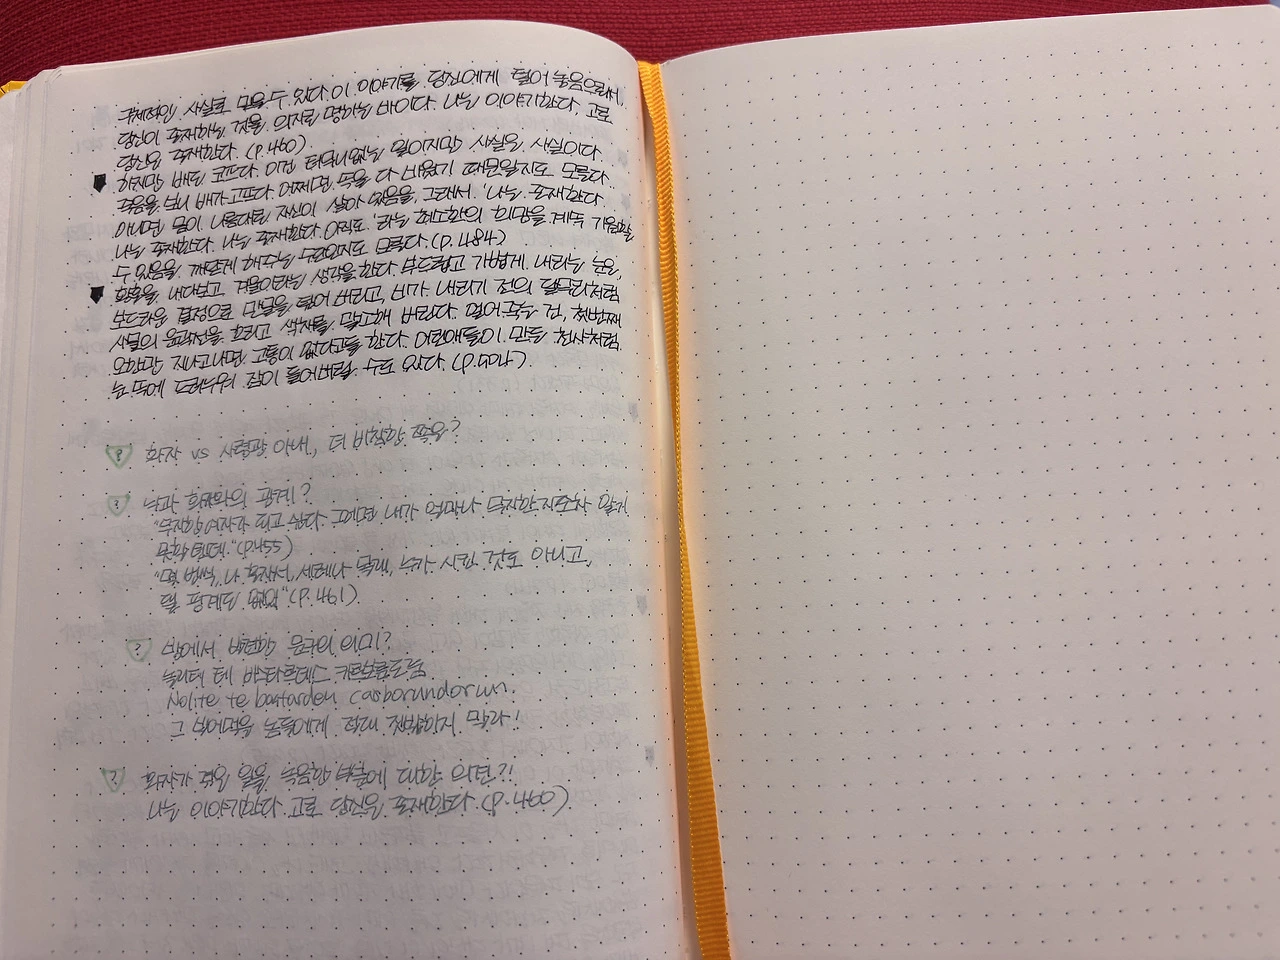 구체적인 사실로 믿을 수 있다. 이 이야기를 당신에게 털어 놓음으로써,
당신이 존재하는 것을 의지로 명하는 바이다. 나는 이야기한다, 고로
당신은 존재한다. (p.460)
하지만 배도 고프다. 이건 터무니없는 일이지만 사실은 사실이다.
죽음을 보니 배가 고프다. 어쩌면 속을 다 비웠기 때문일지도 모른다
아니면 몸이 나름대로 자신이 살아 있음을, 그래서 '나는 존재한다
나는 존재한다. 나는 존재한다. 아직도.'라는 최고한의 희망을 계속 기원할
수 있음을 깨닫게 해주는 수단인지도 모른다. (p.484)
황혼을 내다보고 겨울이라는 생각을 한다. 부드럽고 가볍게 내리는 눈은,
보드라운 결정으로 만물을 덮어 버리고, 비가 내리기 전의 달무리처럼
사물의 윤곽선을 흐리고 색채를 말소해 버린다. 얼어 죽는 건, 첫번째
오한만 지나고나면 고통이 없다고들 한다. 어린애들이 만든 천사처럼
눈 속에 드러누워 잠이 들어버릴 수도 있다. (p.502)
화자 vs 사령관 아내, 더 비참한 쪽은?
닉과 화자와의 관계?
"무지한 여자가 되고 싶다. 그러면 내가 얼마나 무지한지조차 알지
못할 텐데." (p.455)
"몇 번씩, 나 혼자서, 세레나 몰래, 누가 시킨 것도 아니고,
될 관계도 없잖" (p.461)
방에서 발견한 문구의 의미?
놀리테 테 바스타르데스 카르보룬도룸
Nolite te bastarden carborundorum.
그 빌어먹을 놈들에게 절대 짓밟히지 말라!
화자가 겪은 일을 녹음한 부분에 대한 의견?!
나는 이야기한다. 고로 당신은 존재한다. (p.460)